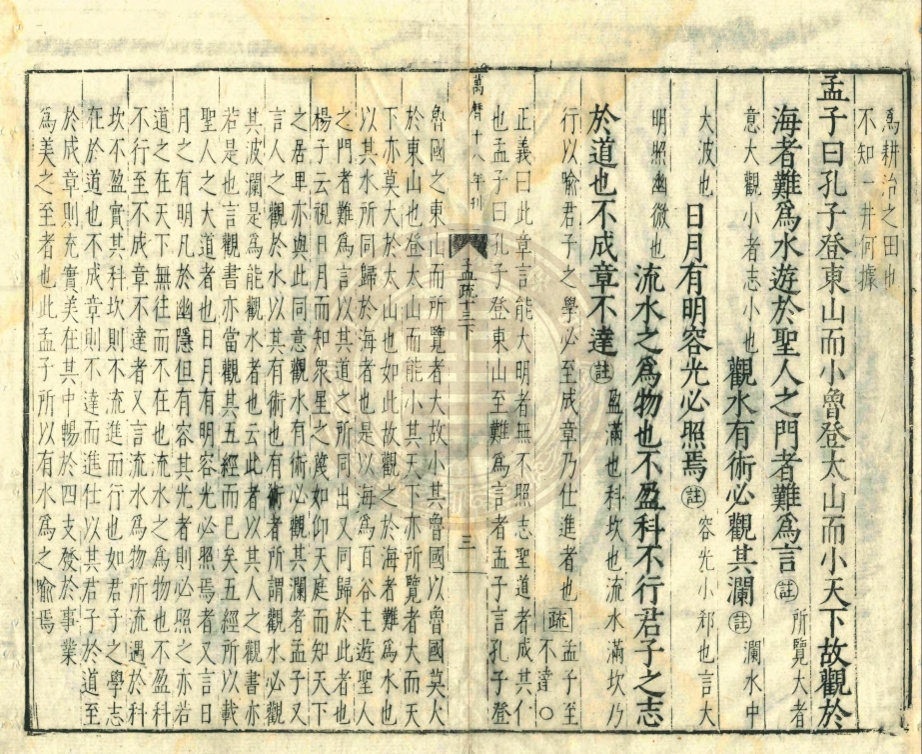 爲耕治之田也
不知一井何據
孟子曰孔子登東山而小魯登太山而小天下故觀於
海者難爲水遊於聖人之門者難爲言註所覽大者
意大觀小者志小也觀水有術必觀其瀾註瀾水中
大波也日月有明容光必照焉註容光小郄也言大
明照幽微也流水之爲物也不盈科不行君子之志
於道也不成章不達註盈滿也科坎也流水滿坎乃
行以喻君子之學必至成章乃仕進者也疏孟子至不達○
正義曰此章言能大明者無不照志聖道者成其仁
也孟子曰孔子登東山至難爲言者孟子言孔子登
萬曆十八年刊 孟疏十三下 三
魯國之東山而所覽者大故小其魯國以魯國莫大
於東山也登太山而能小其天下亦所覽者大而天
下亦莫大於太山也如此故觀之於海者難爲水也
以其水所同歸於海者也是以海爲百谷主遊聖人
之門者難爲言以其道之所同出又同歸於此者也
楊子云視日月而知衆星之蔑如仰天庭而知天下
之居卑亦與此同意觀水有術必觀其瀾者孟子又
言人之觀於水以其有術也有術者所謂觀水必觀
其波瀾是爲能觀水者也云此者以其人之觀書亦
若是也言觀書亦當觀其五經而已矣五經所以載
聖人之大道者也日月有明容光必照焉者又言日
月之有明凡於幽隱但有容其光者則必照之亦若
道之在天下無往而不在也流水之爲物也不盈科
不行至不成章不達者又言流水爲物所流遇於科
坎不盈實其科坎則不流進而行也如君子之學志
在於道也不成章則不達而進仕以其君子於道至
於成章則充實美在其中暢於四支發於事業
爲美之至者也此孟子所以有水爲之喻焉